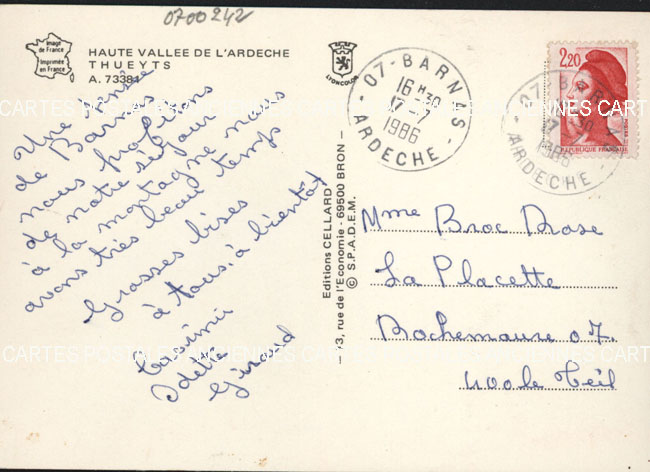 0700242
Image
de France
Imprimée
en France
HAUTE VALLEE DE L'ARDECHE
THUEYTS
A. 73381
LYONCOLOR
07-BARNAS
16 H 30
17-7
1986
ARDECHE
2,20
REPUBLIQUE FRANCAISE
07-BARNAS
1986
ARDECHE
Une
de Barnas
nous profitons
de notre séjour
à la montagne nous
avons très beau temps
Grosses bises
à tous, à bientôt
Odette
Giraud
Editions CELLARD
73, rue de l'Economie - 69500 BRON
© S.P.A.D.E.M.
Mme Broc Rose
La Placette
Rochemaure 07.
400 le Teil
CARTES POSTALES ANCIENNES CARTES POSTALES ANCIENNES CART
CARTES POSTALES ANCIENNES CARTES POSTALES ANCIENNES CART